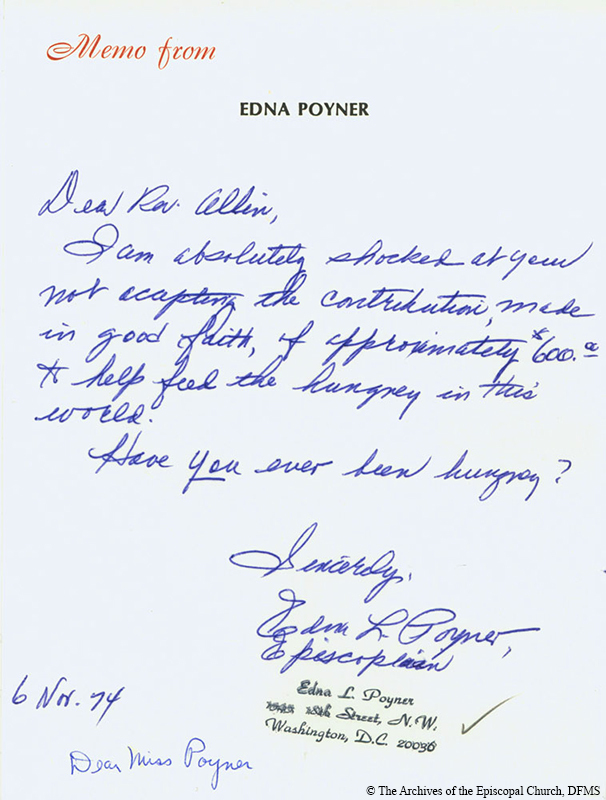 Memo from
EDNA POYNER
Dear Rev. Allin,
I am absolutely shocked at your
not acapting the contribution, made
in good faith, of approximately $600.00
to help feed the hungrey in this
world.
Have you ever been hungrey?
Sincerely,
Edna L. Poyner,
Episcoplian
6 Nov. 74
Edna L. Poyner
18th Street, N.W.
Washington, D.C. 20036
Dear Miss Poyner
© The Archives of the Episcopal Church, DFMS